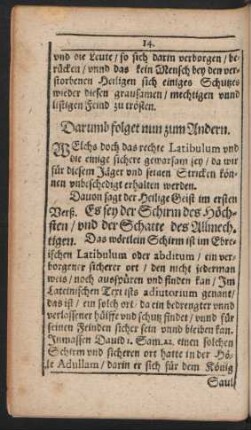 14.
vnd die Leute / so sich darin verborgen / be-
rücken / vnnd das kein Mensch bey den ver-
storbenen Heiligen sich einiges Schutzes
wieder diesen grausamen / mechtigen vnnd
listigen Feind zu trösten.
Darumb folget nun zum Andern.
WElchs doch das rechte Latibulum vnd
die einige sichere gewarsam sey / da wir
für diesem Jäger vnd seinen Stricken kön-
nen vnbeschedigt erhalten werden.
Dauon sagt der Heilige Geist im ersten
Verß. Es sey der Schirm des Höch-
sten / vnd der Schatte des Allmech-
tigen. Das wörtlein Schirm ist im Ebre-
ischen Latibulum oder abditum / ein ver-
borgener sicherer ort / den nicht jederman
weis / noch außspüren vnd finden kan / Im
Lateinischen Text ists adiutorium genant /
das ist / ein solch ort / da ein bedrengter vnnd
verlassener hülffe vnd schutz findet / vnnd für
seinen Feinden sicher sein vnnd bleiben kan.
Inmassen Dauid 1. Sam. 22. einen solchen
Schirm vnd sicheren ort hatte in der Hö-
le Adullam / darin er sich für dem König
Saul